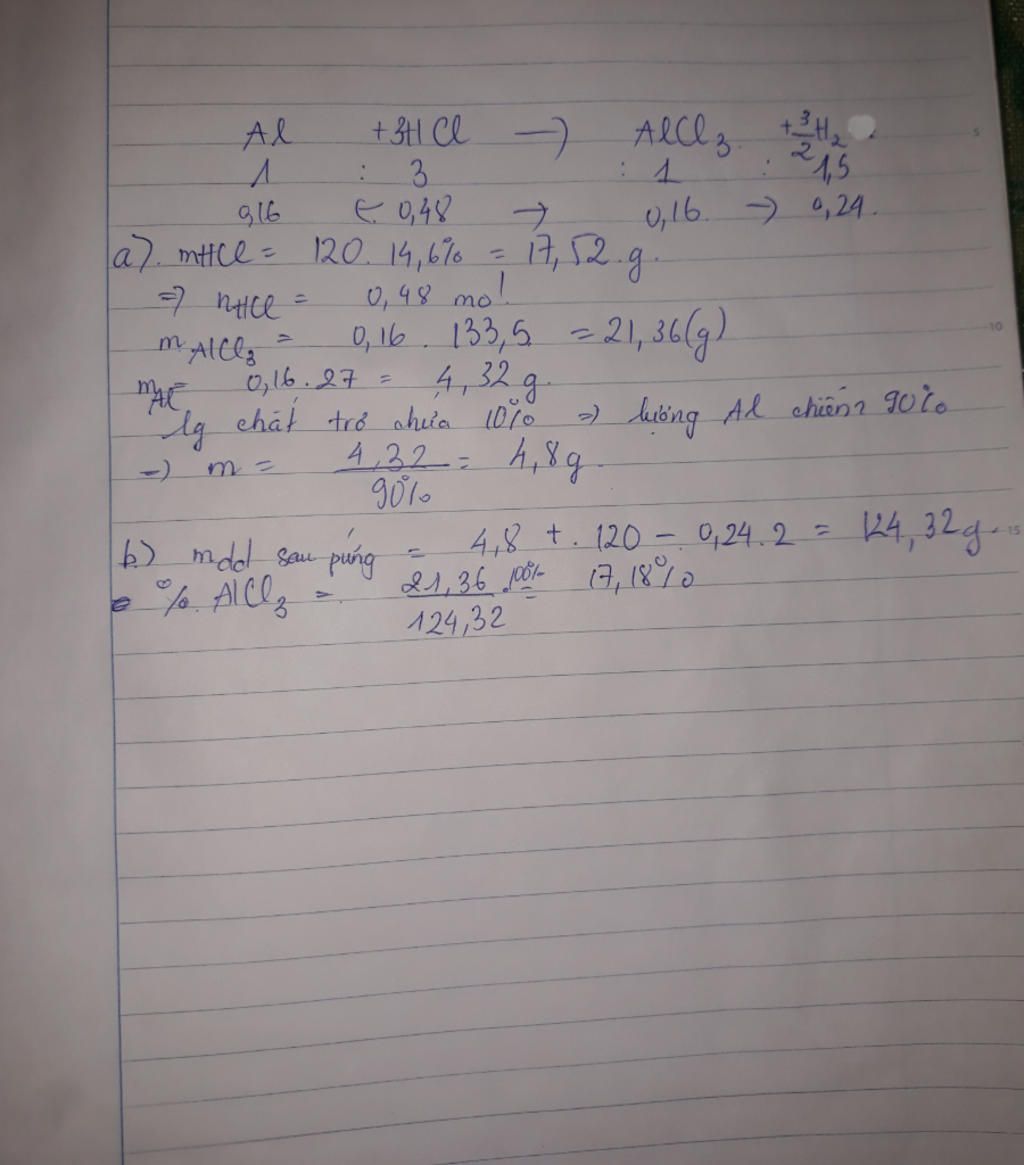 Al + 3HCl → AlCl3 + 3/2 H2
1 : 3 : 1 : 1,5
0,16 ← 0,48 → 0,16 → 0,24.
a). mHCl = 120. 14,6% = 17,52.g.
=> nHCl = 0,48 mol
mAlCl3 = 0,16 . 133,5 = 21,36(g)
mAl = 0,16.27 = 4,32g.
lg chất trơ chứa 10% => lượng Al chiếm 90%
=> m = 4,32/90% = 4,8g.
b) mdd sau pứng = 4,8 + . 120 - 0,24.2 = 124,32g.
% AlCl3 = 21,36/124,32 .100% = 17,18%
5
10
15